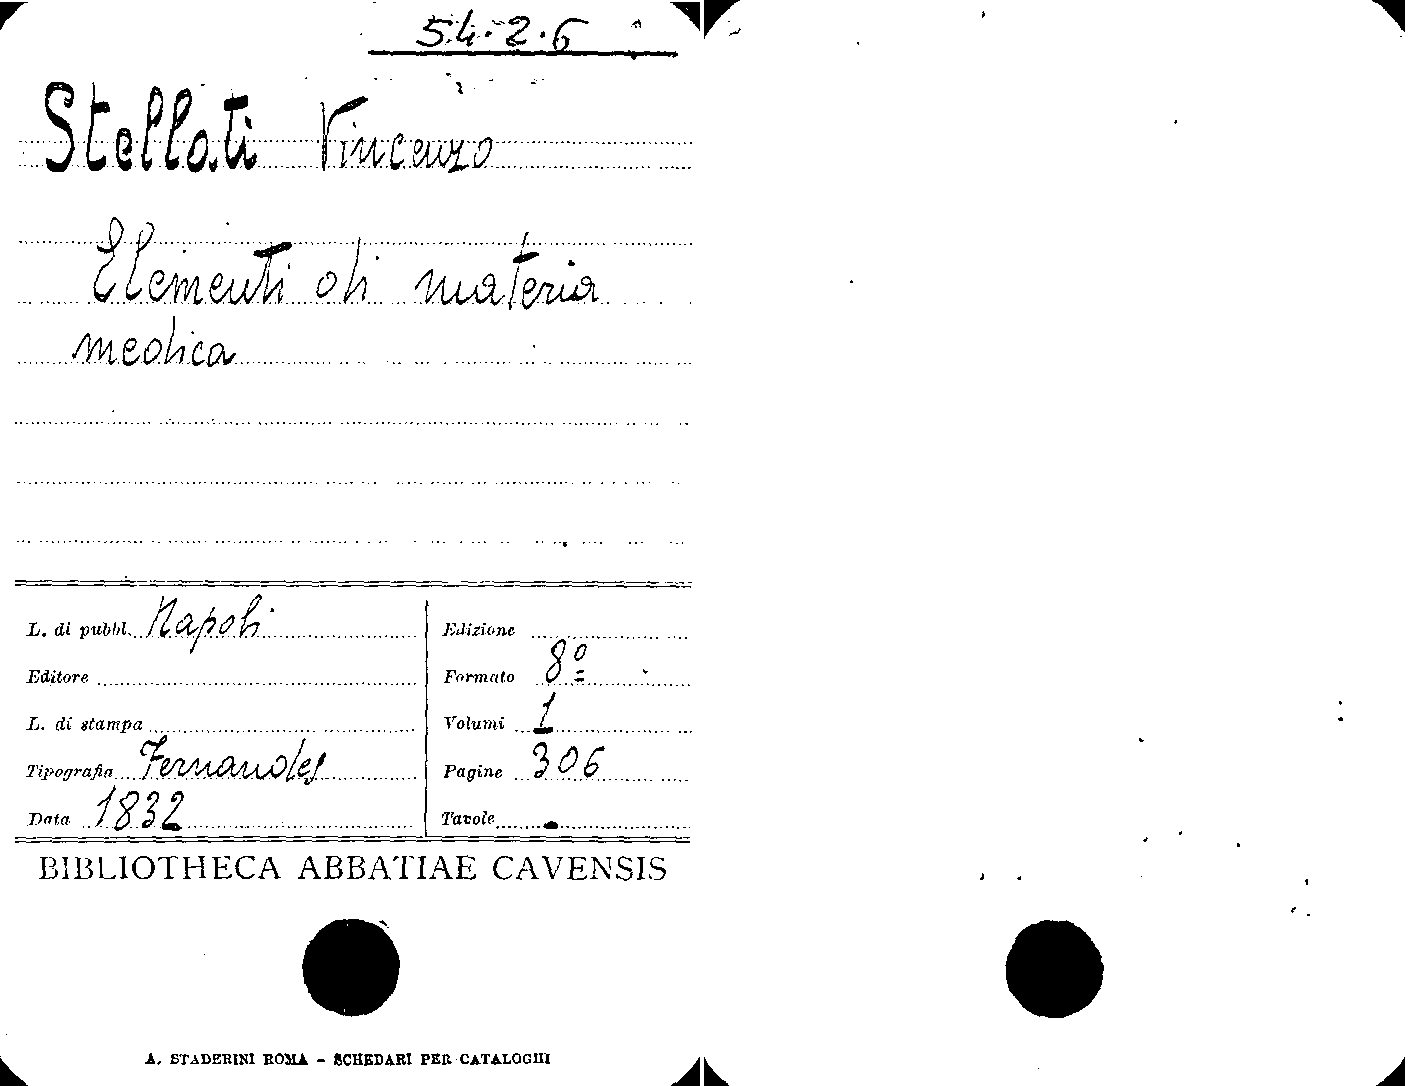 54.2.6
Stellati Vincenzo
Elementi di materia
medica
L. di pubbl. Napoli
Editore
L. di stampa
Tipografia Fernandes
Data 1832
Edizione
Formato 8º
Volumi 1
Pagine 306
Tavole -
BIBLIOTHECA ABBATIAE CAVENSIS
A. STADERINI ROMA - SCHEDARI PER CATALOGHI